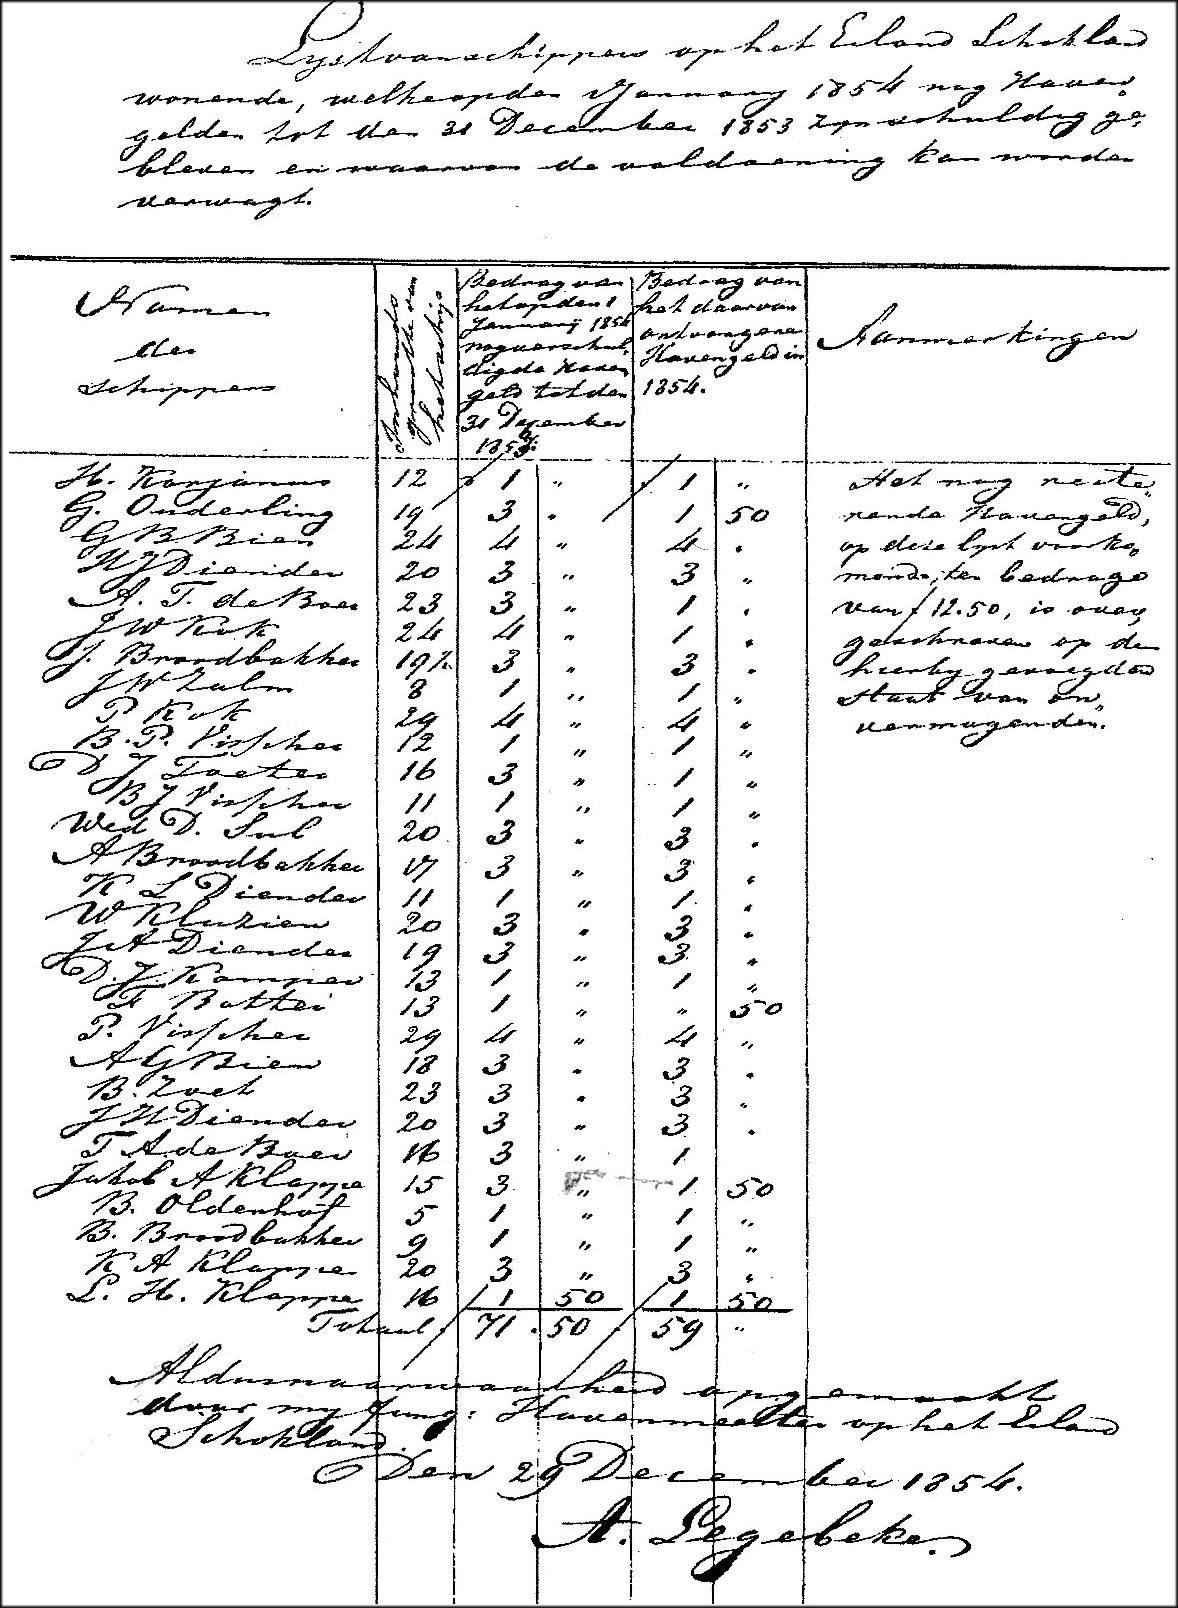 Lystvanschippers op het Eiland Schokland
wonende, welkeopden 1 January 1854 nog Haven-
gelden tot den 31 December 1853 zyn schuldig ge-
bleven en waarvan de voldoening kan worden
verwagt.
Namen
der
schippers
Inhouds
grootte van
het schip
Bedrag van
het op den 1
January 1854
nog verschul-
digde Haven
geld tot den
31 December
1853
Bedrag van
het daarvan
ontvangene
Havengeld in
1854.
Aanmerkingen
H. Konjanus 12 1 " 1 "
G. Ouderling 19 3 " 1 50
G B Bien 24 4 " 4 "
H J Diender 20 3 " 3 "
A. T. de Boer 23 3 " 1 "
J W Kok 24 4 " 1 "
J. Broodbakker 19½ 3 " 3 "
J W Zalm 8 1 " 1 "
P Kok 29 4 " 4 "
B. P. Visscher 12 1 " 1 "
D J Toeter 16 3 " 1 "
B J Visscher 11 1 " 1 "
Wed D. Sul 20 3 " 3 "
A Broodbakker 17 3 " 3 "
K L Diender 11 1 " 1 "
W Kluzien 20 3 " 3 "
J A Diender 19 3 " 3 "
D. J Kamper 13 1 " 1 "
F Botter 13 1 " " 50
P. Visscher 29 4 " 4 "
A G Bien 18 3 " 3 "
B. Zoet 23 3 " 3 "
J H Diender 20 3 " 3 "
T A de Boer 16 3 " 1
Jakob A Klappe 15 3 " 1 50
B. Oldenhof 5 1 " 1 "
B. Broodbakker 9 1 " 1 "
K A Klappe 20 3 " 3 "
L. H. Klappe 16 1 50 1 50
Totaal 71 . 50 59 "
Het nog reste-
rende Havengeld,
op deze lyst voorko-
mende, ten bedrage
van f 12.50, is over-
geschreven op de
hierby gevoegden
staat van on-
vermogenden.
Aldus naar waarheid opgemaakt
door my fung: Havenmeester op het Eiland
Schokland.
Den 29 December 1854.
A. Legebeke.